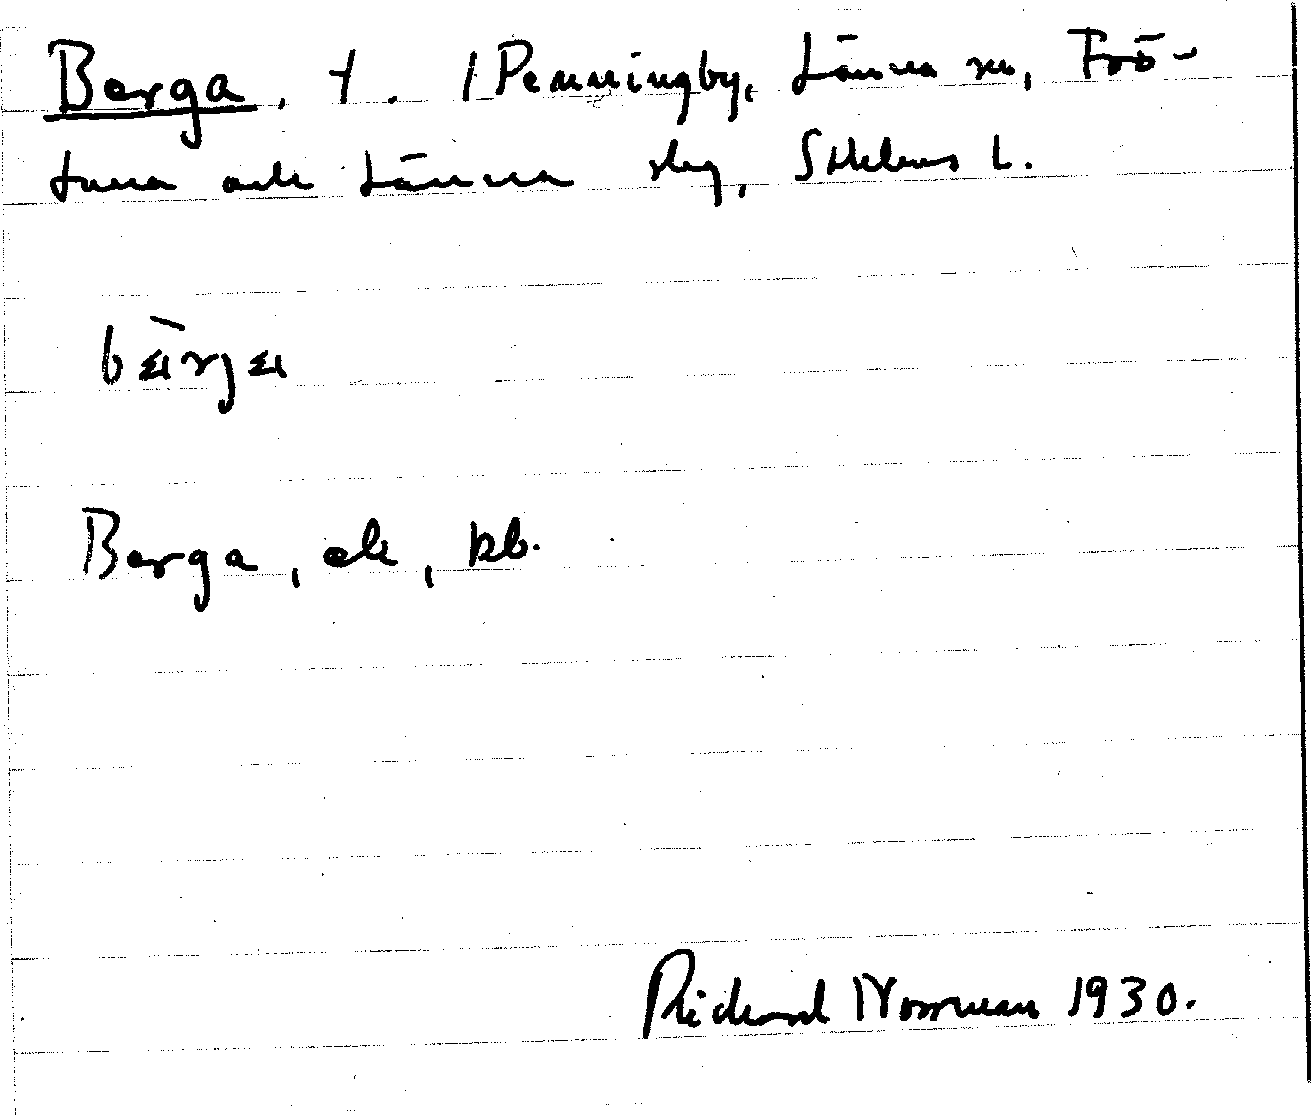 Berga, t. /Penningby, Länna sn, Frö-
tuna och Länna slg, Sthlms l.
bærga
Berga, ek, kb.
Rickard Norrman 1930.